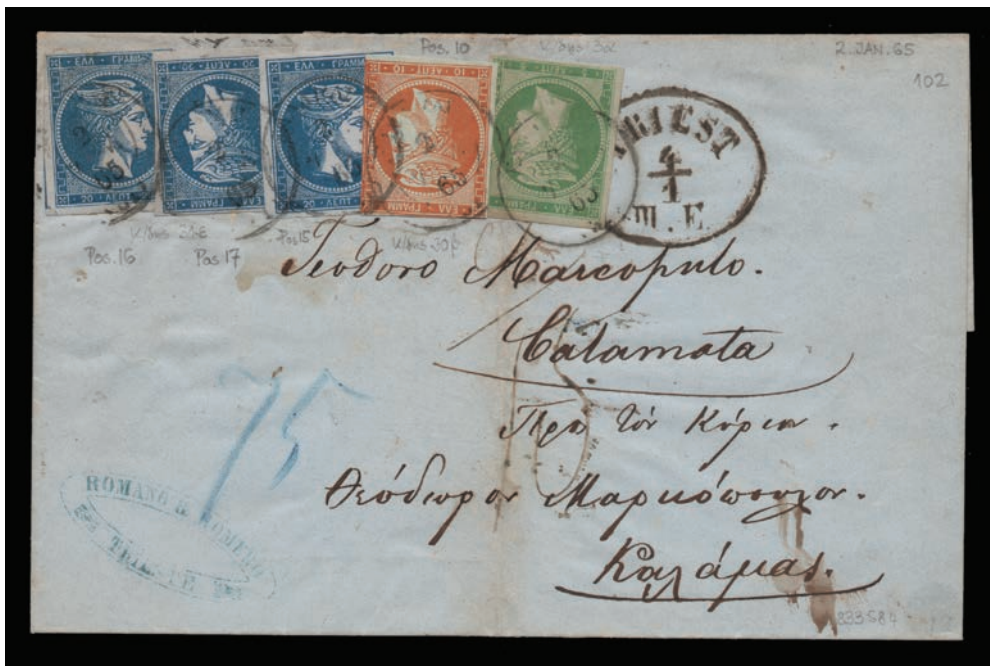 Pos. 10
2. JAN. 65
102
ΕΛΛ ΓΡΑΜΜ
10 ΛΕΠΤ 10
ΕΛΛ ΓΡΑΜΜ
5 ΛΕΠΤ 5
2
65
65
TRIEST
4
1
M. E.
Pos. 16
Pos. 17
Pos 15
Teodoro Marcopulo.
Calamata
Πρὸς τὸν Κύριον.
Θεόδωρον Μαρκόπουλον.
Καλάμας.
75
15
ROMANO & ROMERO
TRIESTE
833584